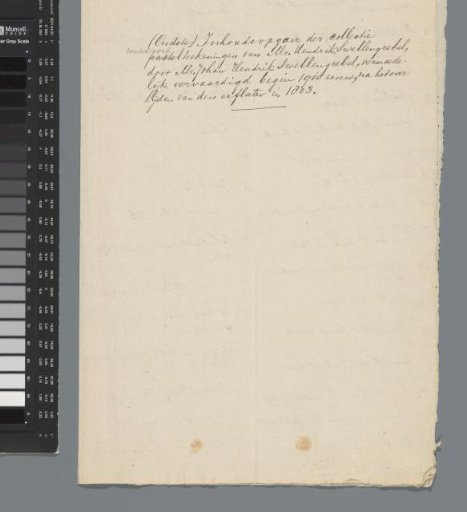 Munsell
Color
Gray Scale
(Oudste) Inhoudsopgave der collectie
pastelteekeningen van Mr. Hendrik Swellengrebel,
door Mr. Johan Hendrik Swellengrebel, vermoede-
lijk vervaardigd begin 19de eeuw, na het over-
lijden van dien erflater in 1803.